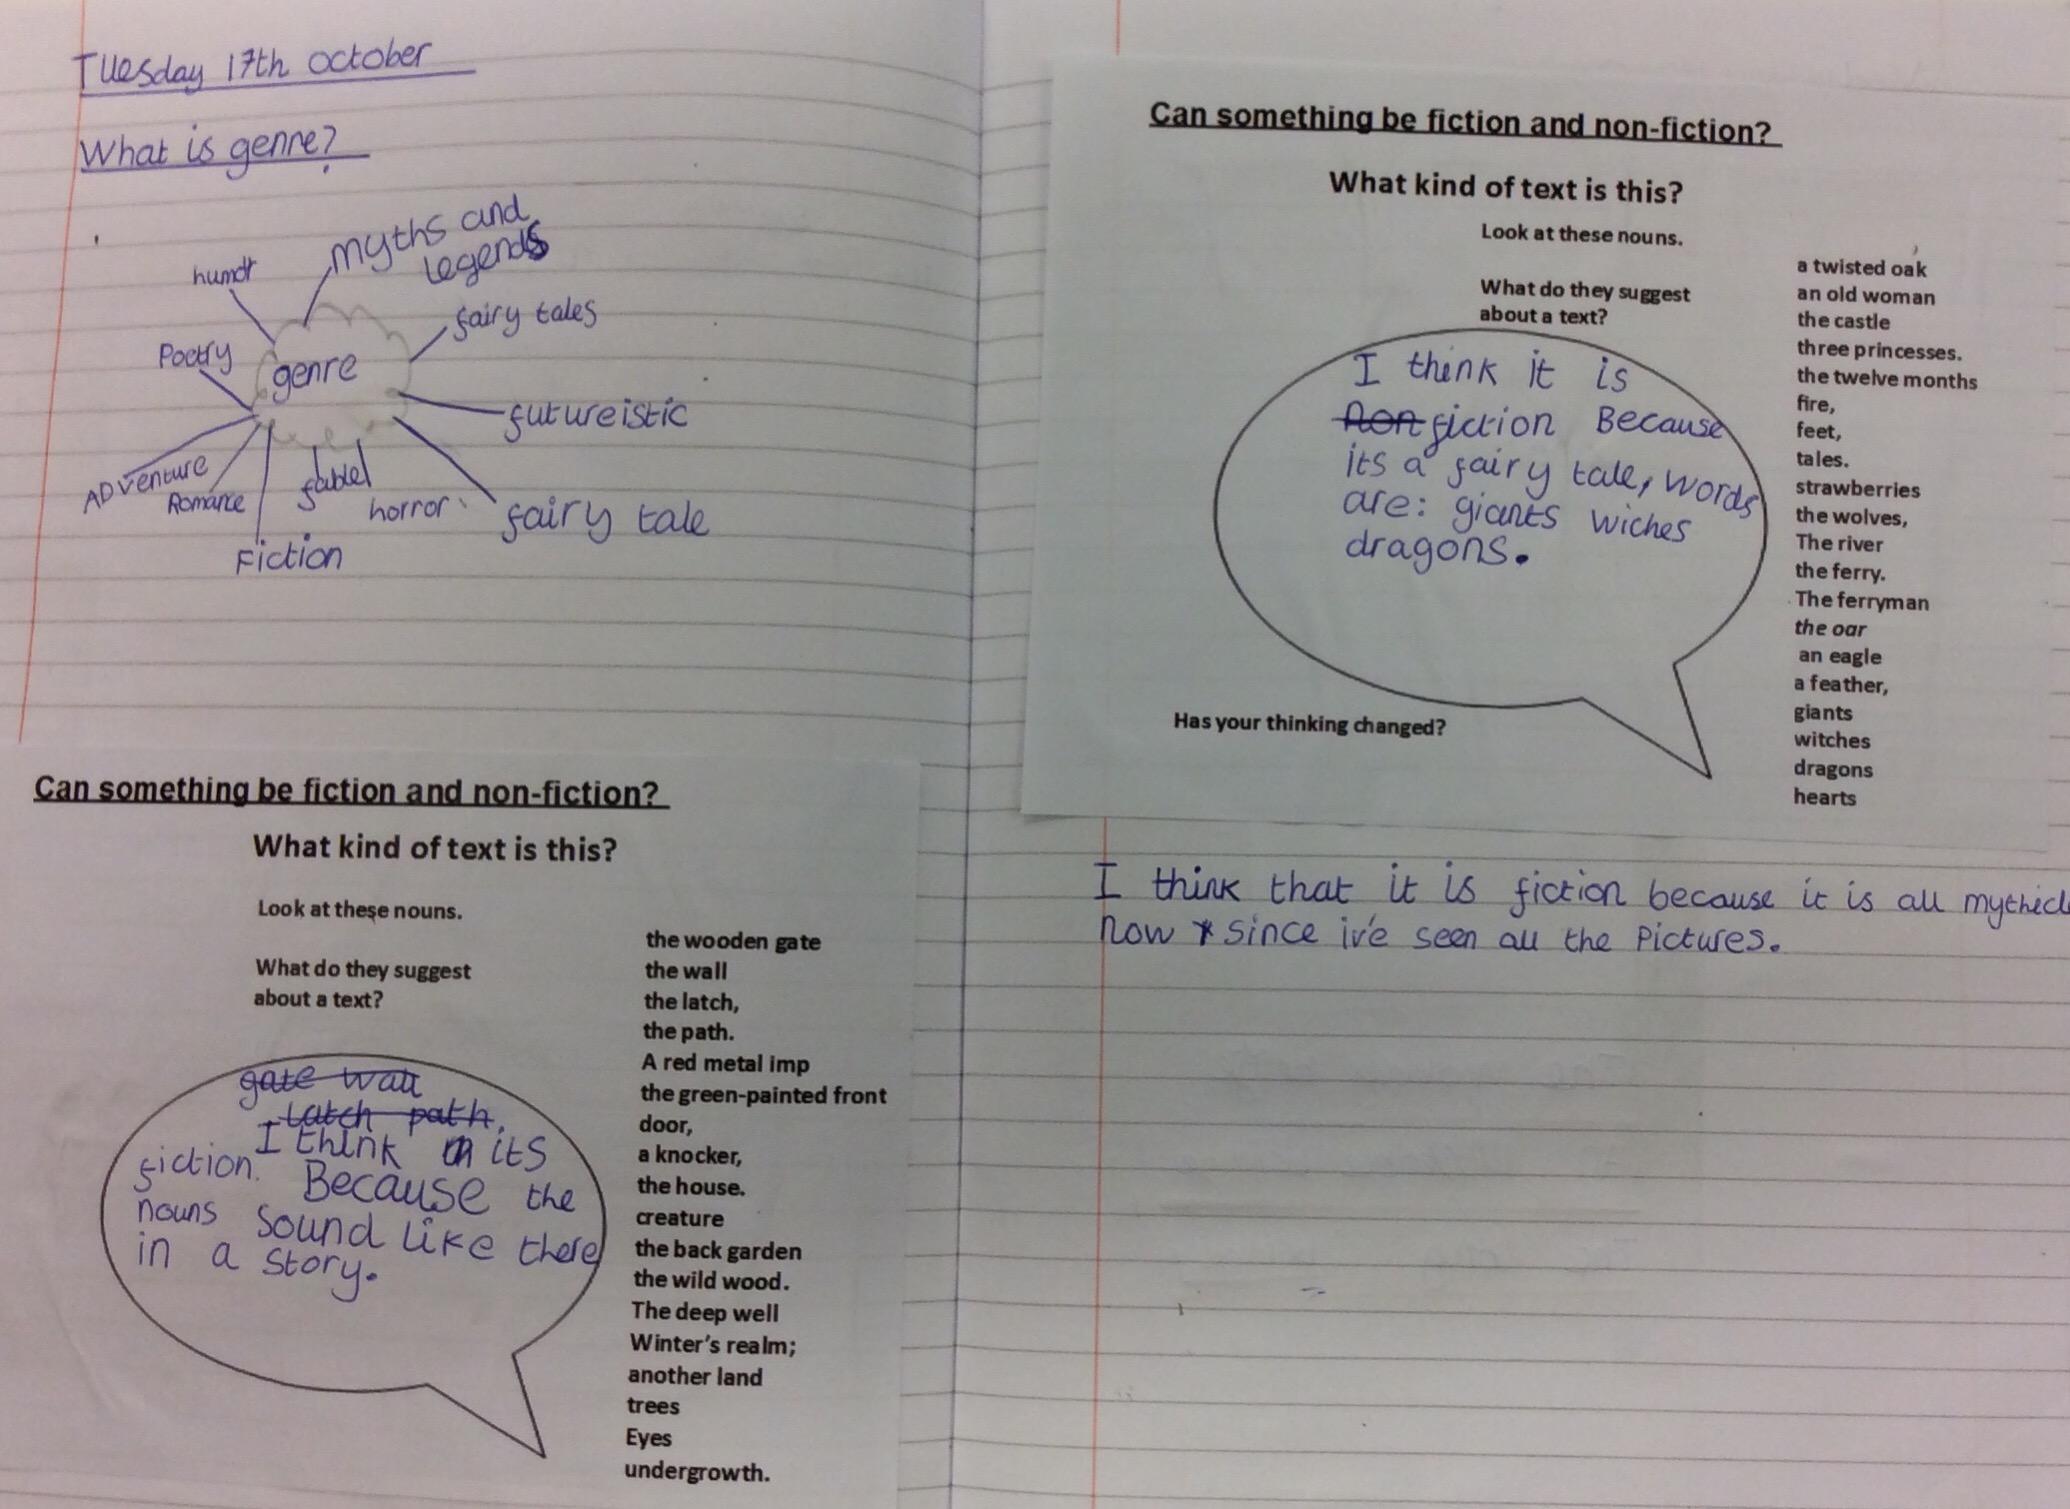 Tuesday 17th October
What is genre?
myths and
legends
humor
fairy tales
Poetry
genre
futureistic
ADventure
Romance
fable
horror
fairy tale
Fiction
Can something be fiction and non-fiction?
What kind of text is this?
Look at these nouns.
What do they suggest
about a text?
the wooden gate
the wall
the latch,
the path.
A red metal imp
the green-painted front
door,
a knocker,
the house.
creature
the back garden
the wild wood.
The deep well
Winter's realm;
another land
trees
Eyes
undergrowth.
gate wall
latch path.
I think its
fiction. Because the
nouns sound like there
in a story.
Can something be fiction and non-fiction?
What kind of text is this?
Look at these nouns.
What do they suggest
about a text?
a twisted oak
an old woman
the castle
three princesses.
the twelve months
fire,
feet,
tales.
strawberries
the wolves,
The river
the ferry.
The ferryman
the oar
an eagle
a feather,
giants
witches
dragons
hearts
I think it is
non fiction Because
its a fairy tale, words
are: giants wiches
dragons.
Has your thinking changed?
I think that it is fiction because it is all
now since iv'e seen all the Pictures.